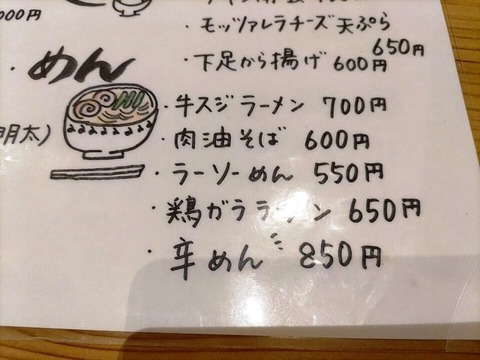 000円
・モッツァレラチーズ天ぷら
650円
・下足から揚げ 600円
・めん
明太)
・牛スジラーメン 700円
・肉油そば 600円
・ラーソーめん 550円
・鶏ガララーメン 650円
・辛めん 850円